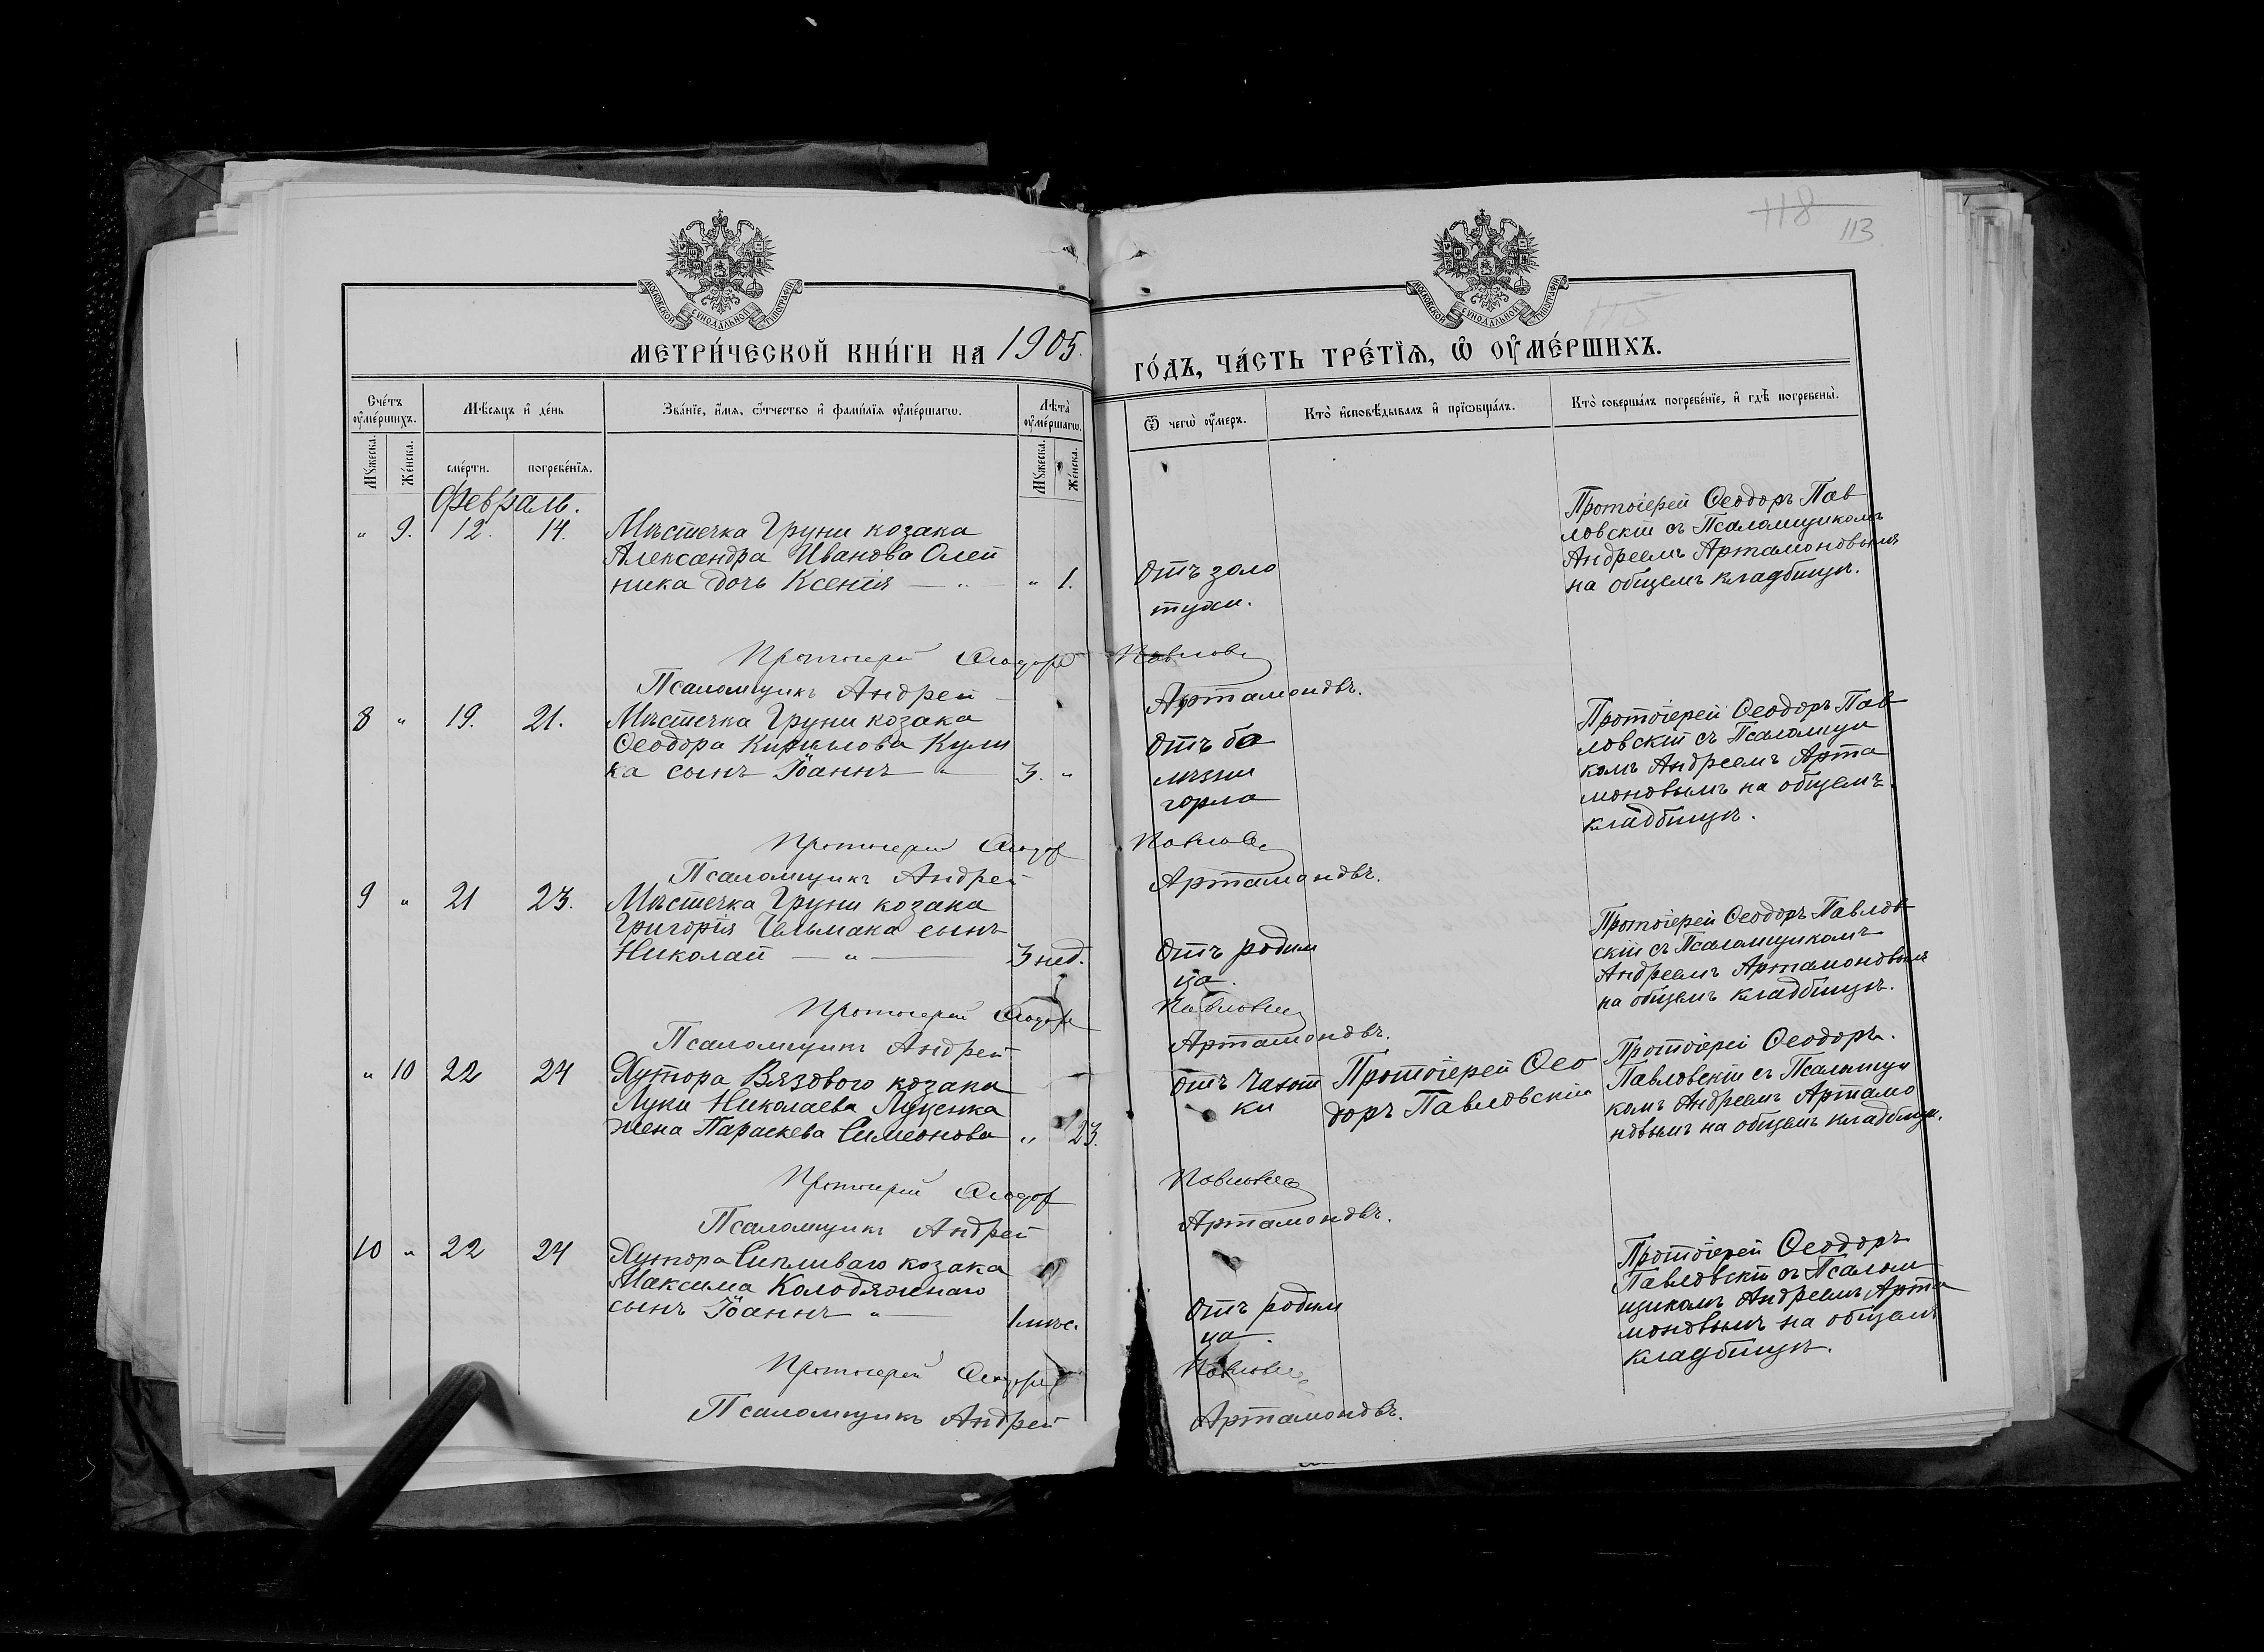 118
113
МОСКОВСКОЙ СУНОДАЛЬНОЙ ТИПОГРАФІИ
МОСКОВСКОЙ СУНОДАЛЬНОЙ ТИПОГРАФІИ
МЕТРИ́ЧЕСКОЙ КНИ́ГИ НА 1905.
ГО́ДЪ, ЧА́СТЬ ТРЕ́ТЇѦ, Ѡ҆ ОУ҆МЕ́РШИХЪ.
Сче́тъ оу҆ме́ршихъ.
Мѣсѧцъ и҆ де́нь
Зва́нїе, и҆́мѧ, ѻ҆́тчество и҆ фамилїѧ оу҆ме́ршагѡ.
Лѣта̀ оу҆ме́ршагѡ.
Ѿ чегѡ̀ оу҆́меръ.
Кто̀ и҆сповѣ́дывалъ и҆ прїѡбща́лъ.
Кто̀ соверша́лъ погребе́нїе, и҆ гдѣ̀ погребены̀.
Мꙋ́жеска.
Же́нска.
сме́рти.
погребе́нїѧ.
Мꙋ́жеска.
Же́нска.
Февраль.
" 9. 12. 14. Мѣстечка Груни козака
Александра Иванова Олей
ника дочь Ксенія — " — " 1.
Отъ золо
тухи.
Протоіерей Ѳеодоръ Пав
ловскій съ Псаломщикомъ
Андреемъ Артамоновымъ
на общемъ кладбищѣ.
Протоіерей Ѳеодоръ Павловс
Псаломщикъ Андрей Артамоновъ.
8 " 19. 21. Мѣстечка Груни козака
Ѳеодора Кирилова Кули
ка сынъ Іоаннъ — " 3. "
Отъ бо
лѣзни
горла
Протоіерей Ѳеодоръ Пав
ловскій съ Псаломщи
комъ Андреемъ Арта
моновымъ на общемъ
кладбищѣ.
Протоіерей Ѳеодор Павловс
Псаломщикъ Андрей Артамоновъ.
9 " 21 23. Мѣстечка Груни козака
Григорія Чельмака сынъ
Николай — " — 3 нед.
Отъ родим
ца.
Протоіерей Ѳеодоръ Павлов
скій съ Псаломщикомъ
Андреемъ Артамоновымъ
на общемъ кладбищѣ.
Протоіерей Ѳеодор Павловс
Псаломщикъ Андрей Артамоновъ.
" 10 22 24 Хутора Вязового козака
Луки Николаева Луценка
жена Параскева Симеонова " 23.
Отъ чахот
ки
Протоіерей Ѳео
доръ Павловскій
Протоіерей Ѳеодоръ.
Павловскій съ Псаломщи
комъ Андреемъ Артамо
новымъ на общемъ кладбищѣ.
Протоіерей Ѳеодор Павловс
Псаломщикъ Андрей Артамоновъ.
10 " 22 24 Хутора Сипливаго козака
Максима Колодяжнаго
сынъ Іоаннъ " — 1 мѣс.
Отъ родим
ца.
Протоіерей Ѳеодоръ
Павловскій съ Псалом
щикомъ Андреемъ Арта
моновымъ на общемъ
кладбищѣ.
Протоіерей Ѳеодор Павловс
Псаломщикъ Андрей Артамоновъ.